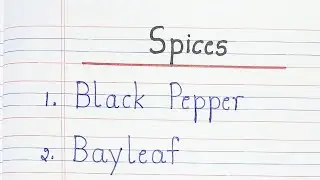 Spices
1. Black Pepper
2. Bayleaf